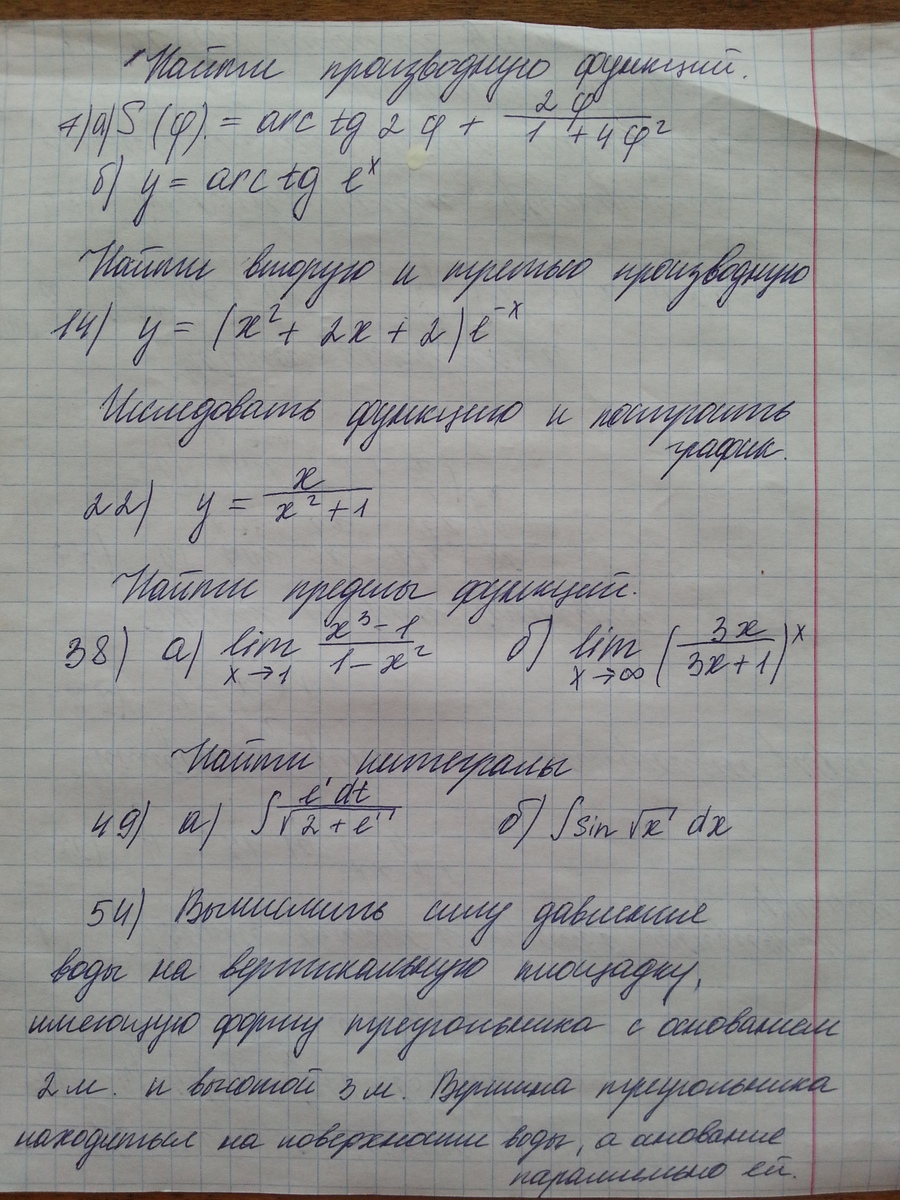 Найти производную функций.
7) а) S(φ) = arc tg 2φ + 2φ / (1 + 4φ²)
б) y = arc tg eˣ
Найти вторую и третью производную
14) y = (x² + 2x + 2) e⁻ˣ
Исследовать функцию и построить
график.
22) y = x / (x² + 1)
Найти пределы функций.
38) а) lim x→1 (x³ - 1) / (1 - x²) б) lim x→∞ (3x / (3x + 1))ˣ
Найти интегралы
49) а) ∫ eᵗ dt / √(2 + eᵗ) б) ∫ sin √x dx
54) Вычислить силу давление
воды на вертикальную площадку,
имеющую форму треугольника с основанием
2 м. и высотой 3 м. Вершина треугольника
находиться на поверхности воды, а онование
параллельно ей.